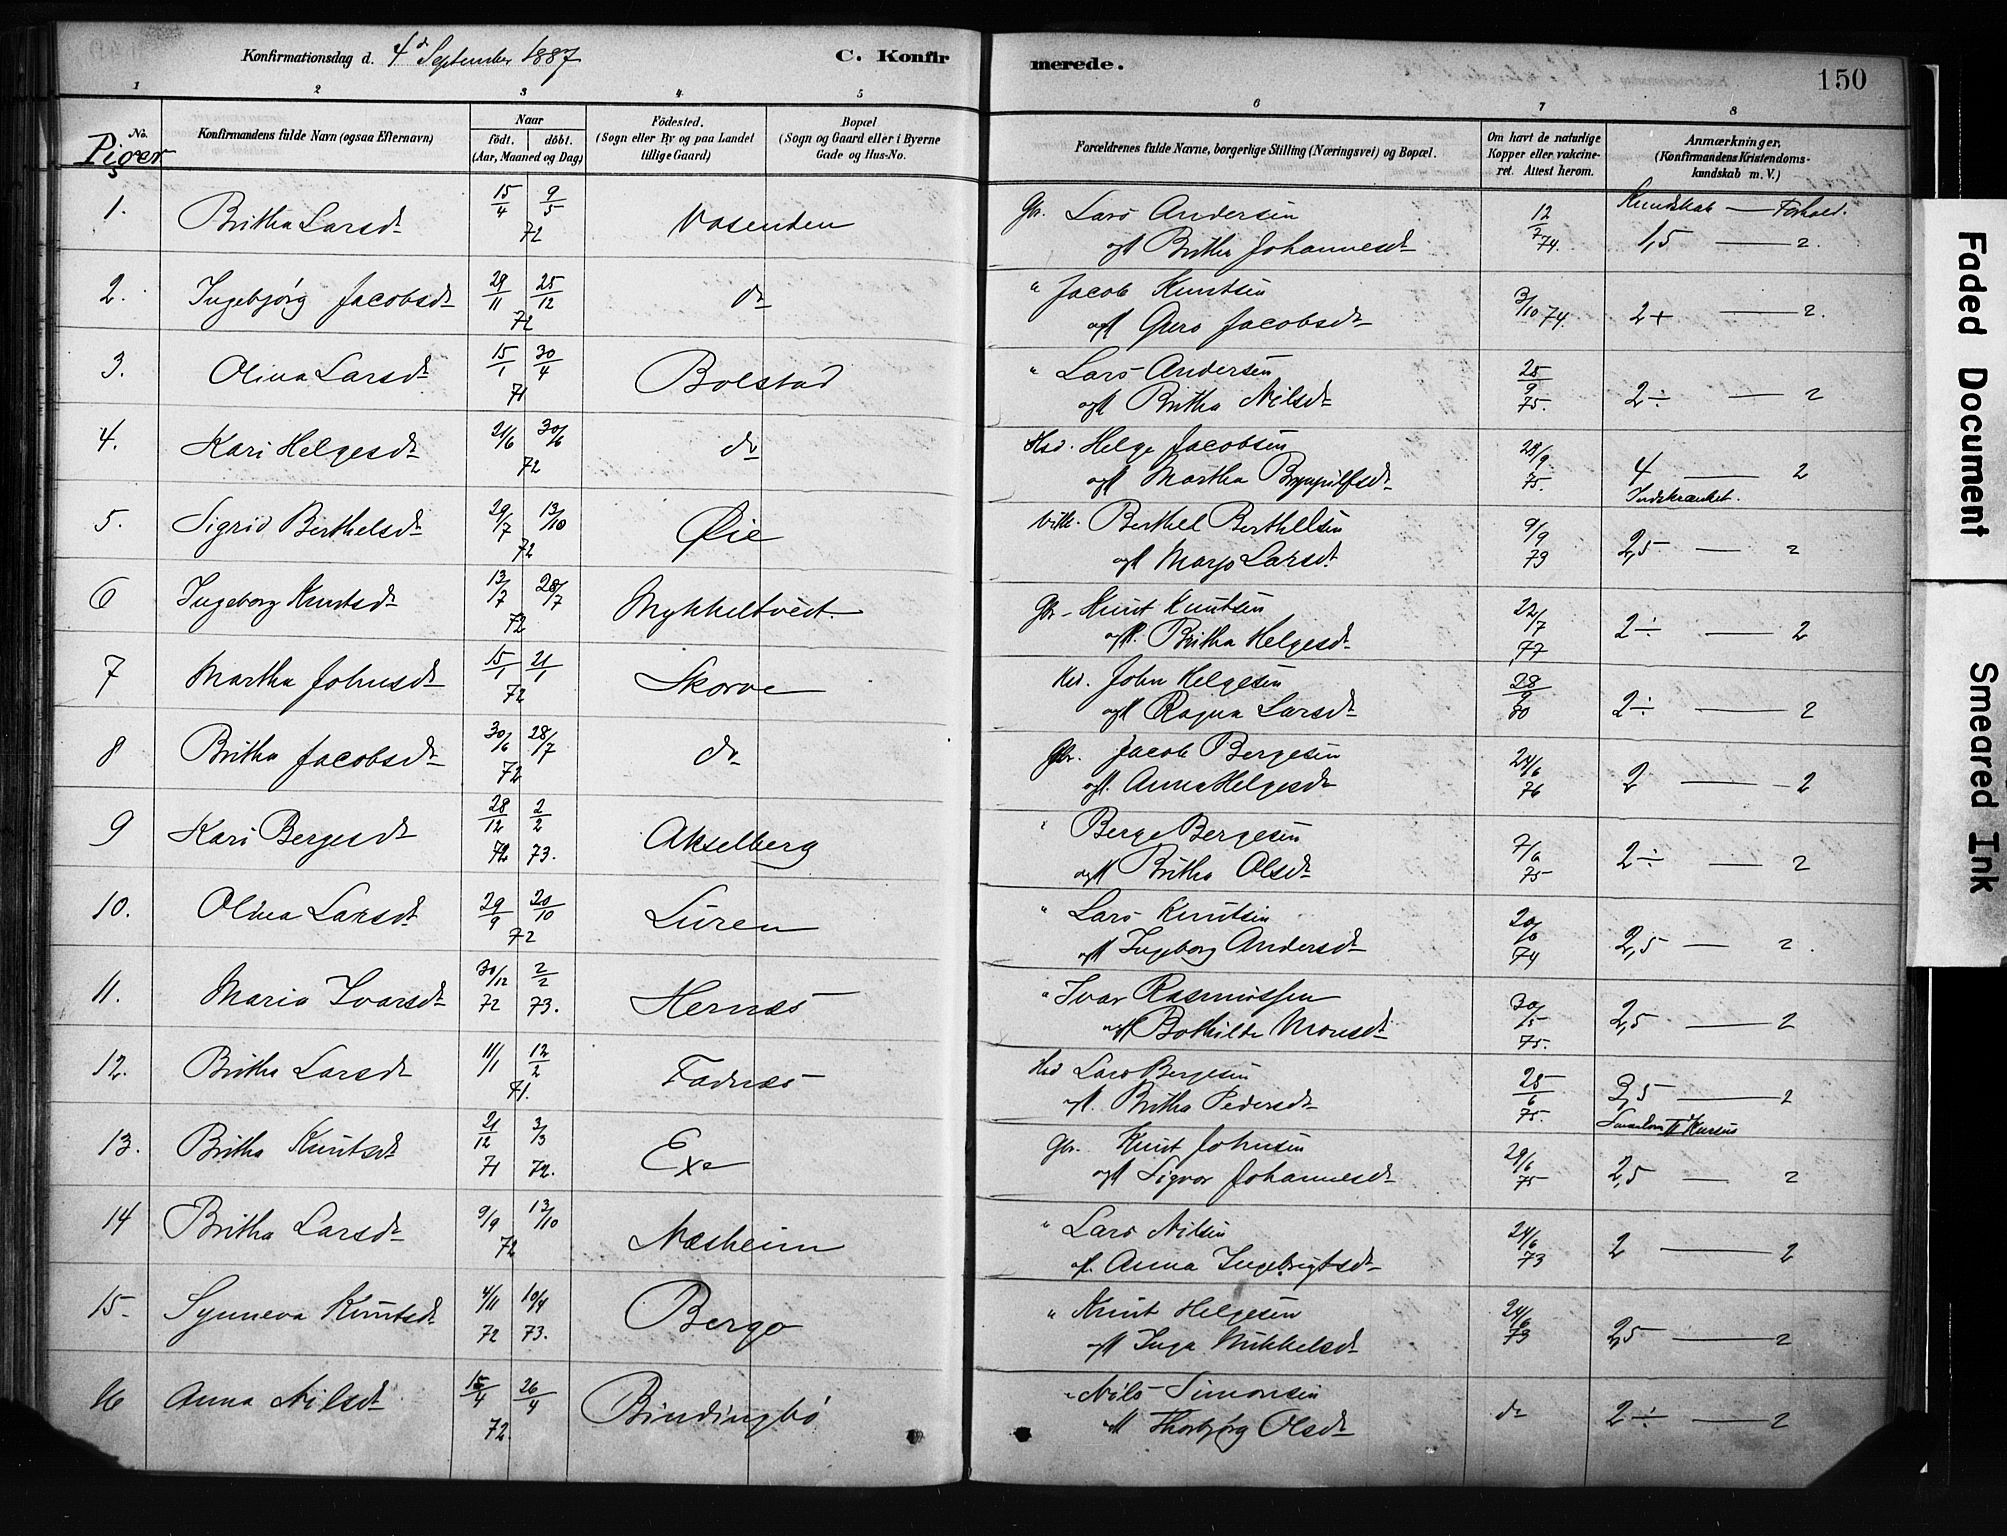 Konfirmationsdag d. 4d September 1887
C. Konfirmerede.
150
1 2 3 4 5 6 7 8
No.
Piger
Konfirmandens fulde Navn (ogsaa Efternavn)
Naar
født. døbt.
(Aar, Maaned og Dag)
Fødested.
(Sogn eller By og paa Landet
tillige Gaard)
Bopæl
(Sogn og Gaard eller i Byerne
Gade og Hus-No.
Forældrenes fulde Navne, borgerlige Stilling (Næringsvei) og Bopæl.
Om havt de naturlige
Kopper eller vakcine-
ret. Attest herom.
Anmærkninger.
(Konfirmandens Kristendoms-
kundskab m. V.)
Kundskab — Forhold.
1. Britha Larsdt 15/4 9/5 72 Vasenden Gbr. Lars Andersen
og Britha Johannesdt 12/7 74. 1,5 — 2.
2. Ingebjørg Jacobsdt 29/11 25/12 72 do " Jacob Knutsen
og Guro Jacobsdt 3/10 74. 2+ — 2.
3. Olina Larsdt 15/1 30/4 71 Bolstad " Lars Andersen
og Britha Nilsdt 25/9 75. 2÷ — 2
4. Kari Helgesdt 21/6 30/6 72 do Hsd. Helge Jacobsen
og Martha Brynjulfsdt 28/9 75. 4 — 2
Indskrænket.
5. Sigrid Berthelsdt 29/7 13/10 72 Øie Berthel Berthelsen
og Larsdt 9/9 73 2,5 — 2
6 Ingeborg Knutsdt 13/7 28/7 72 Mykkeltvedt. Gbr. Knut Knutsen
og Britha Helgesdt 22/7 77 2÷ — 2
7 Martha Johnsdt 15/1 21/1 72 Skorve Hsd. John Helgesen
og Ragna Larsdt 28/9 80 2÷ — 2
8 Britha Jacobsdt 30/6 28/7 72 do Gbr. Jacob Bergesen
og Anna Helgesdt 24/6 76 2 — 2
9 Kari Bergesdt 28/12 72 2/2 73. Akselberg " Berge Bergesen
og Britha Olsdt 7/6 75 2÷ — 2
10. Olina Larsdt 29/9 20/10 72 Liren " Lars Knutsen
og Ingeborg Andersdt 74 2,5 — 2.
11. Maria Ivarsdt 30/12 72 2/2 73. Hernæs " Ivar Rasmussen
og Bothilde Monsdt 30/5 75. 2,5 — 2
12. Britha Larsdt 11/1 12/2 71. Fadnæs Hsd Lars Bergesen
og Britha Pedersdt 25/6 75. 3,5 — 2
II Kursus
13. Britha Knutsdt 21/12 71 3/3 72. Exe Gbr. Knut Johnsen
og Sigvor Johannesdt 29/6 75 2,5 — 2
14 Britha Larsdt 9/9 13/10 72 Næsheim " Lars Nilsen
og Anna Ingebrigtsdt 24/6 73 2 — 2
15. Synneva Knutsdt 4/11 72 10/4 73. Bergo " Knut Helgesen
og Inga Mikkelsdt 24/6 79 2,5 — 2
16 Anna Nilsdt 15/4 26/4 72. Bindingbø " Nils Simonsen
og Thorbjørg Olsdt do 2÷ — 2
Faded Document
Smeared Ink